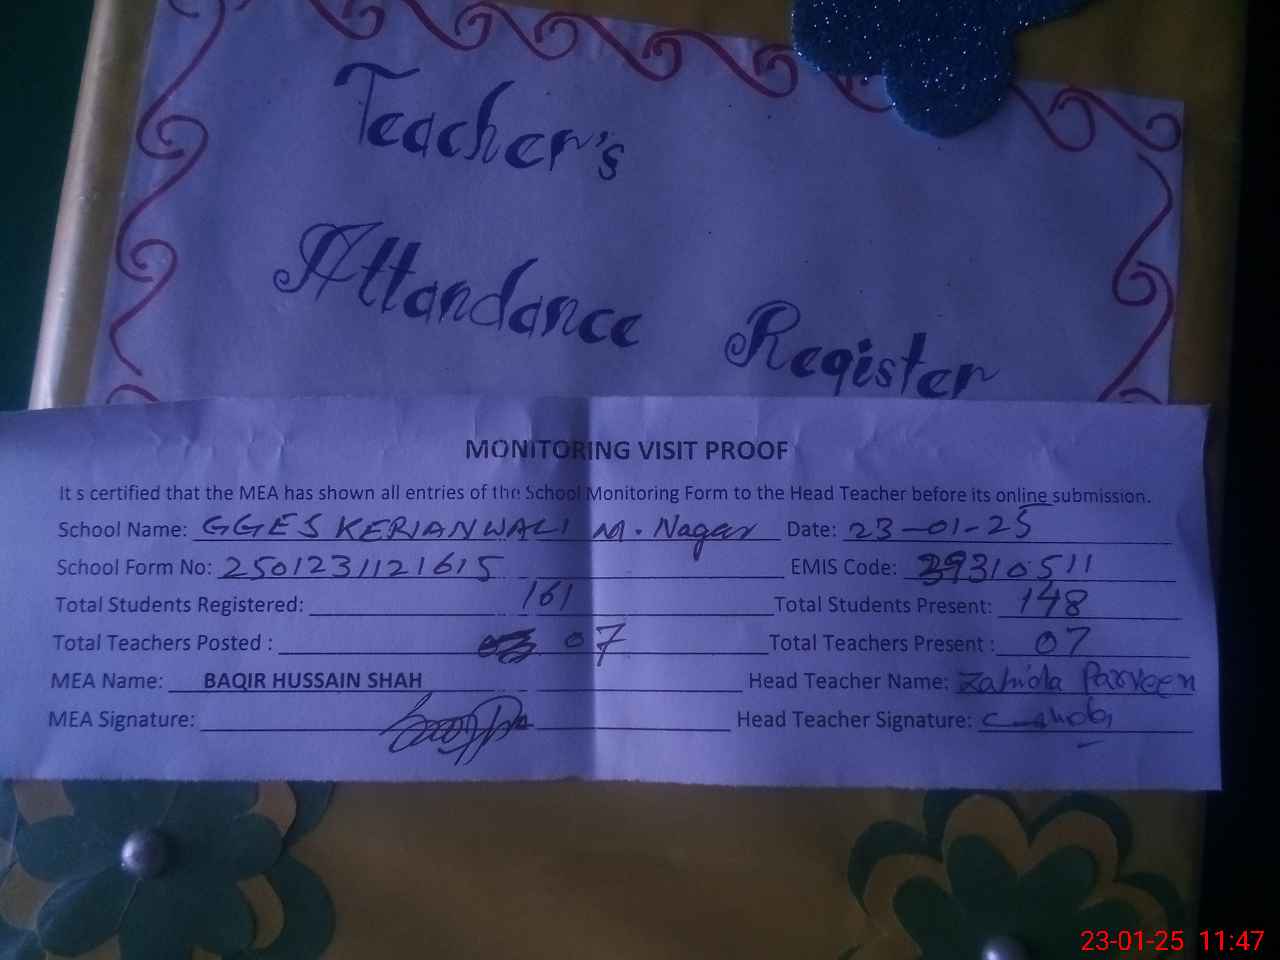 Teacher's
Attandance Register
MONITORING VISIT PROOF
It s certified that the MEA has shown all entries of the School Monitoring Form to the Head Teacher before its online submission.
School Name: GGES KERIANWALI M. Nagar Date: 23-01-25
School Form No: 2501231121615 EMIS Code: 39310511
Total Students Registered: 161 Total Students Present: 148
Total Teachers Posted : 07 Total Teachers Present : 07
MEA Name: BAQIR HUSSAIN SHAH Head Teacher Name: Zahida Parveen
MEA Signature: Head Teacher Signature:
23-01-25 11:47